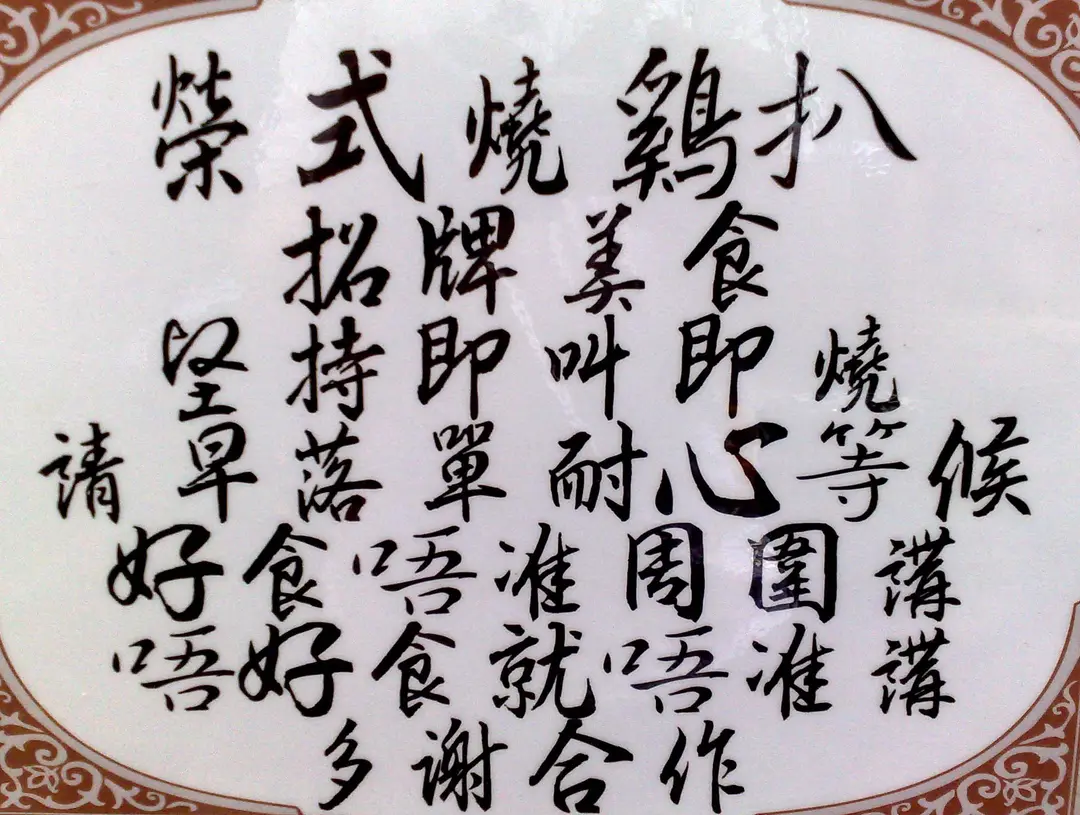 榮式燒鷄扒
招牌美食
堅持即叫即燒
請早落單耐心等候
好食唔准周圍講
唔好食就唔准講
多謝合作